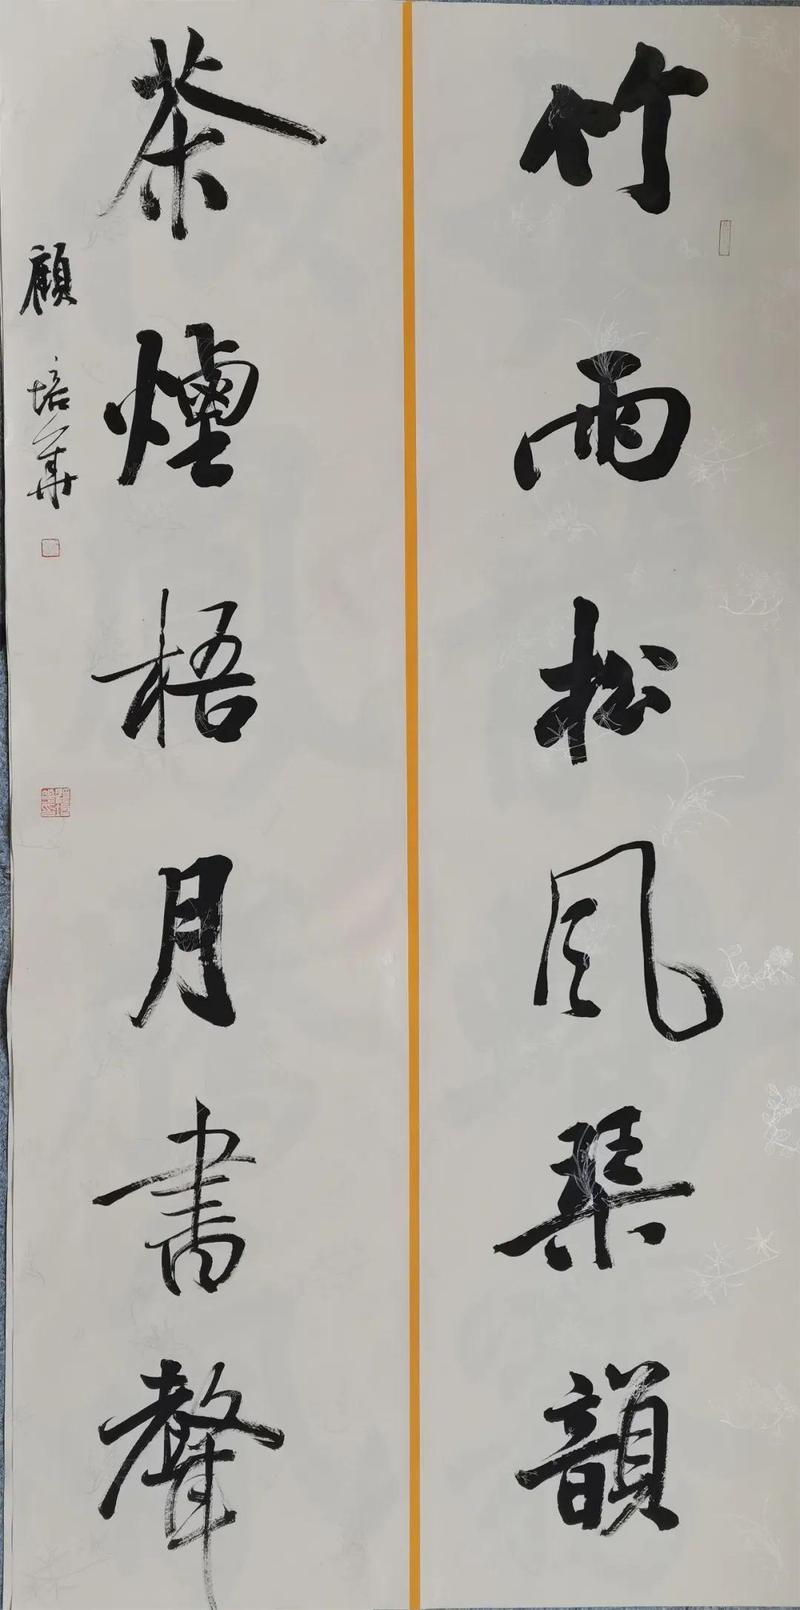 竹雨松風琴韻
茶煙梧月書聲
顧培華